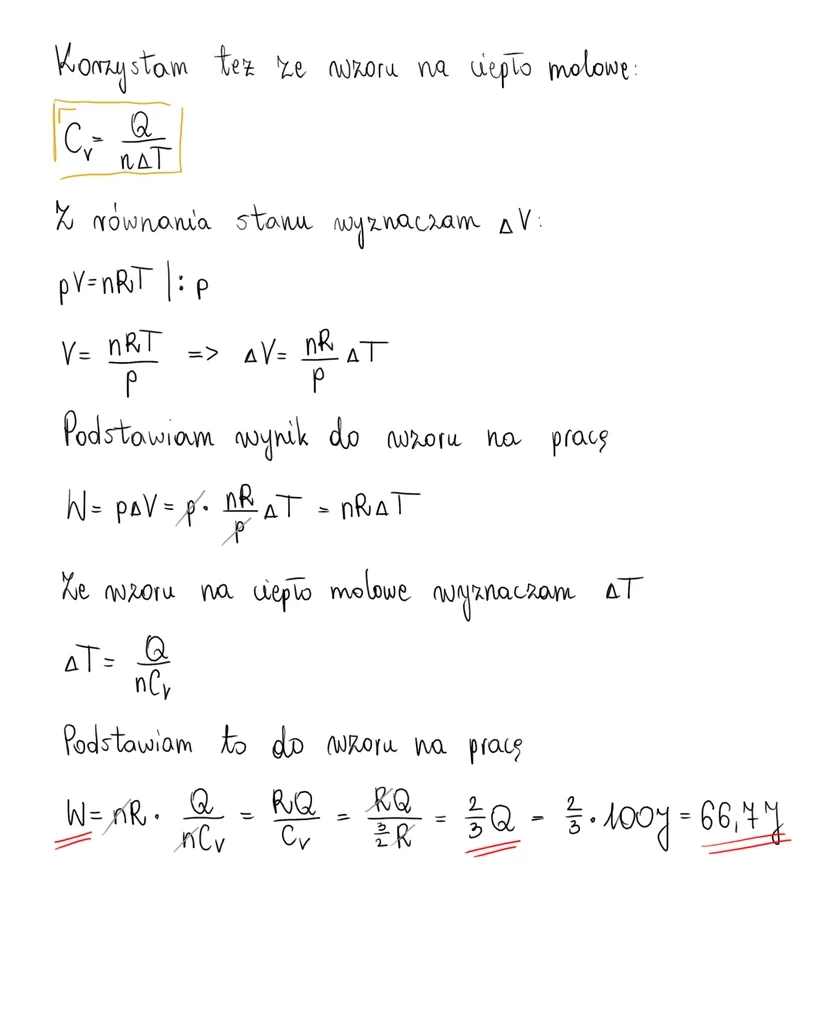 Korzystam też ze wzoru na ciepło molowe:
Cᵥ = Q / nΔT
Z równania stanu wyznaczam ΔV:
pV = nRT |: p
V = nRT / p => ΔV = nR / p ΔT
Podstawiam wynik do wzoru na pracę
W = pΔV = p · nR / p ΔT = nRΔT
Ze wzoru na ciepło molowe wyznaczam ΔT
ΔT = Q / nCᵥ
Podstawiam to do wzoru na pracę
W = nR · Q / nCᵥ = RQ / Cᵥ = RQ / 3/2 R = 2/3 Q = 2/3 · 100J = 66,7J